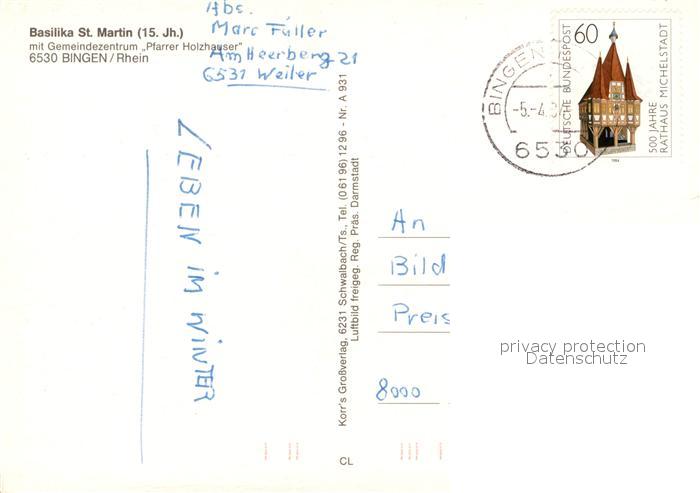 Basilika St. Martin (15. Jh.)
mit Gemeindezentrum „Pfarrer Holzhauser"
6530 BINGEN / Rhein
Abs.
Marc Füller
Am Heerberg 21
6531 Weiler
LEBEN IM WINTER
Korr's Großverlag, 6231 Schwalbach/Ts., Tel. (0 61 96) 12 96 - Nr. A 931
Luftbild freigeg. Reg. Präs. Darmstadt
CL
BINGEN
-5.-4.
6530
60
DEUTSCHE BUNDESPOST
500 JAHRE
RATHAUS MICHELSTADT
1984
An
Bild
Preis
8000
privacy protection
Datenschutz